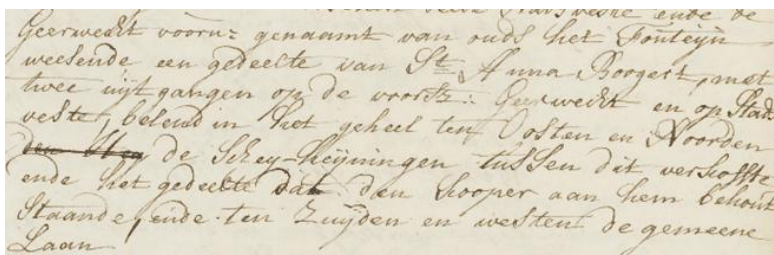 Stadsveste ende de
Geerweckt voorn: genaamt van ouds het Fonteijn
weesende een gedeelte van St. Anna Boogert, met
twee uijtgangen op de voorsz: Geerweckt en op Stads
veste, belend in het geheel ten Oosten en Noorden
de Schey-heijningen tussen dit verkoffte
ende het gedeelte dat den kooper aan hem behout
Staande, ende ten Zuijden en westen de gemeene
Laan